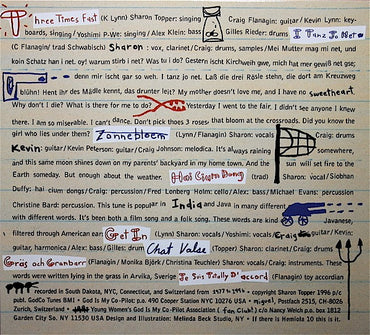 Three Times Fast (K Lynn) Sharon Topper: singing Craig Flanagin: guitar/Kevin Lynn: key-
boards, singing/Yoshimi P-We: singing/Alex Klein: bass Gilles Rieder: drums I Tanz Jo Nöt
(C Flanagin/trad Schwabisch) Sharon: vox, clarinet/Craig: drums, samples/Mei Mutter mag mi net, und
koin Schatz han i net. oy! warum stirb i net? Was tu i do? Gestern ischt Kirchweih gwe, mich hat mer gewiß net gse;
denn mir ischt gar so weh. I tanz jo net. Laß die drei Räsle stehn, die dort am Kreuzweg
blühn! Hent ihr des Mädle kennt, das drunter leit? My mother doesn't love me, and I have no sweetheart
Why don't I die? What is there for me to do? Yesterday I went to the fair, I didn't see anyone I knew
there. I am so miserable. I can't dance. Don't pick thoes 3 roses that bloom at the crossroads. Did you know the
girl who lies under them? Zonnebloem (Lynn/Flanagin) Sharon: vocals Craig: drums
Kevin: guitar/Kevin Peterson: guitar/Craig Johnson: melodica. It's always raining somewhere,
and this same moon shines down on my parents' backyard in my home town. And the sun will set fire to the
Earth someday. But enough about the weather. (trad) Sharon: vocal/Siobhan
Duffy: hai cium dongs/Craig: percussion/Fred Lonberg Holm: cello/Alex: bass/Michael Evans: percussion
Christine Bard: percussion. This tune is popular in India and Java in many different
with different words. It's been both a film song and a folk song. These words are kind Javanese,
filtered through American ears Get In (Lynn/Flanagin) Sharon: vocals/Yoshimi: vocals/Craig guitar/Kevin:
guitar, harmonica/Alex: bass/Gilles: drum Chat Valse (Topper) Sharon: clarinet/Craig: drums
Gräs och Granbarr (Flanagin/Monika Björk/Christina Teuchler) Sharon: vocals/Craig: instruments. These
words were written lying in the grass in Arvika, Sverige Je Suis Totally D'accord (Flanagin) toy accordian
recorded in South Dakota, NYC, Connecticut, and Switzerland from copyright Sharon Topper 1996 p/c
publ. GodCo Tunes BMI • God Is My Co-Pilot: p.o. 490 Cooper Station NYC 10276 USA • miguel, Postlach 2515, CH-8026
Zurich, Switzerland • Young Women's God Is My Co-Pilot Association (fan club) c/o Nancy Weich p.o. box 1812
Garden City So. NY 11530 USA Design and Illustration: Melinda Beck Studio, NY • If there is lemniola 10 this is it.